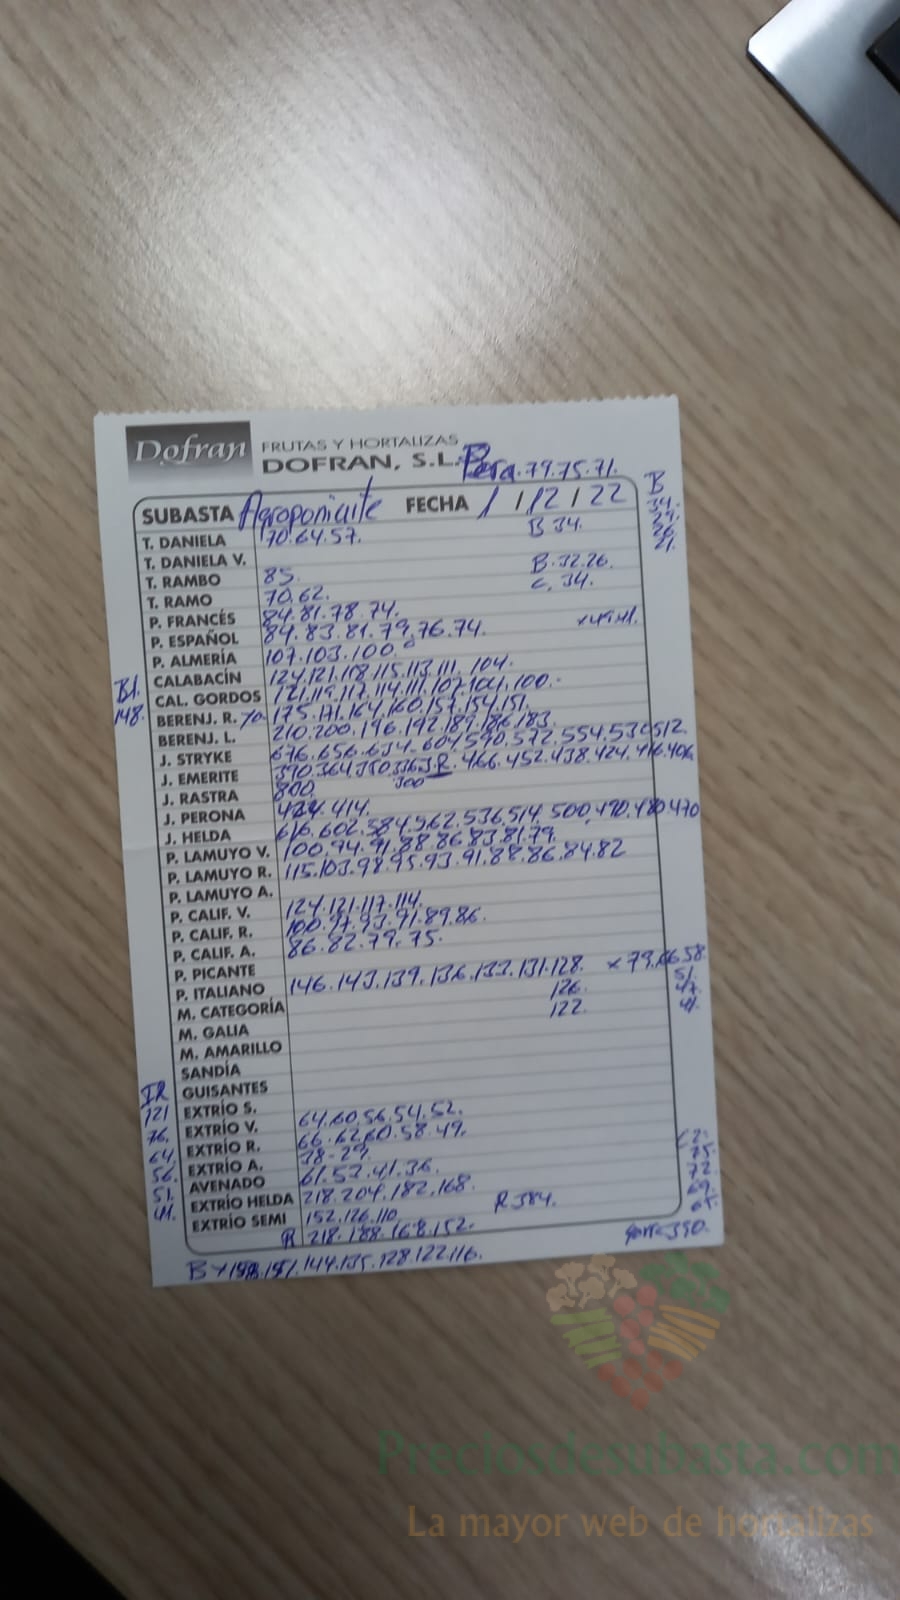 Dofran FRUTAS Y HORTALIZAS
DOFRAN, S.L. Pera.79.75.71.
SUBASTA Agroponiente FECHA 1/12/22 B
T. DANIELA 70.64.57. B 34. 34.
T. DANIELA V.
T. RAMBO 85. B.32.26. 21.
T. RAMO 70.62. C. 34.
P. FRANCÉS 84.81.78.74.
P. ESPAÑOL 84.83.81.79.76.74.
P. ALMERÍA 107.103.100.
CALABACÍN 124.121.118.115.113.111.104.
B1. CAL. GORDOS 121.119.117.114.111.107.104.100.
148. BERENJ. R. 175.171.164.160.157.154.151.
BERENJ. L. 210.200.196.192.189.186.183.
J. STRYKE 676.656.634.604.590.572.554.530.512.
J. EMERITE 390.364.350.336.J.R.466.452.438.424.416.406
J. RASTRA 800. 300
J. PERONA 424.414.
J. HELDA 616.602.584.562.536.514.500.490.480.470
P. LAMUYO V. 100.94.91.88.86.83.81.79.
P. LAMUYO R. 115.103.98.95.93.91.88.86.84.82
P. LAMUYO A.
P. CALIF. V. 124.121.117.114.
P. CALIF. R. 100.97.93.91.89.86.
P. CALIF. A. 86.82.79.75.
P. PICANTE
P. ITALIANO 146.143.139.136.133.131.128. x 79.66.58
M. CATEGORÍA 126. 51.
M. GALIA 122. 47.
M. AMARILLO 41.
SANDÍA
GUISANTES
IR
121 EXTRÍO S. 64.60.56.54.52.
76. EXTRÍO V. 66.62.60.58.49.
64. EXTRÍO R. 38-29.
56. EXTRÍO A. 61.52.41.36. 75.
51. AVENADO 72.
41. EXTRÍO HELDA 218.204.182.168. R 384. 69.
EXTRÍO SEMI 152.126.110.
R 218.188.168.152. 390.
B 151.144.135.128.122.116.
Preciosdesubasta.com
La mayor web de hortalizas